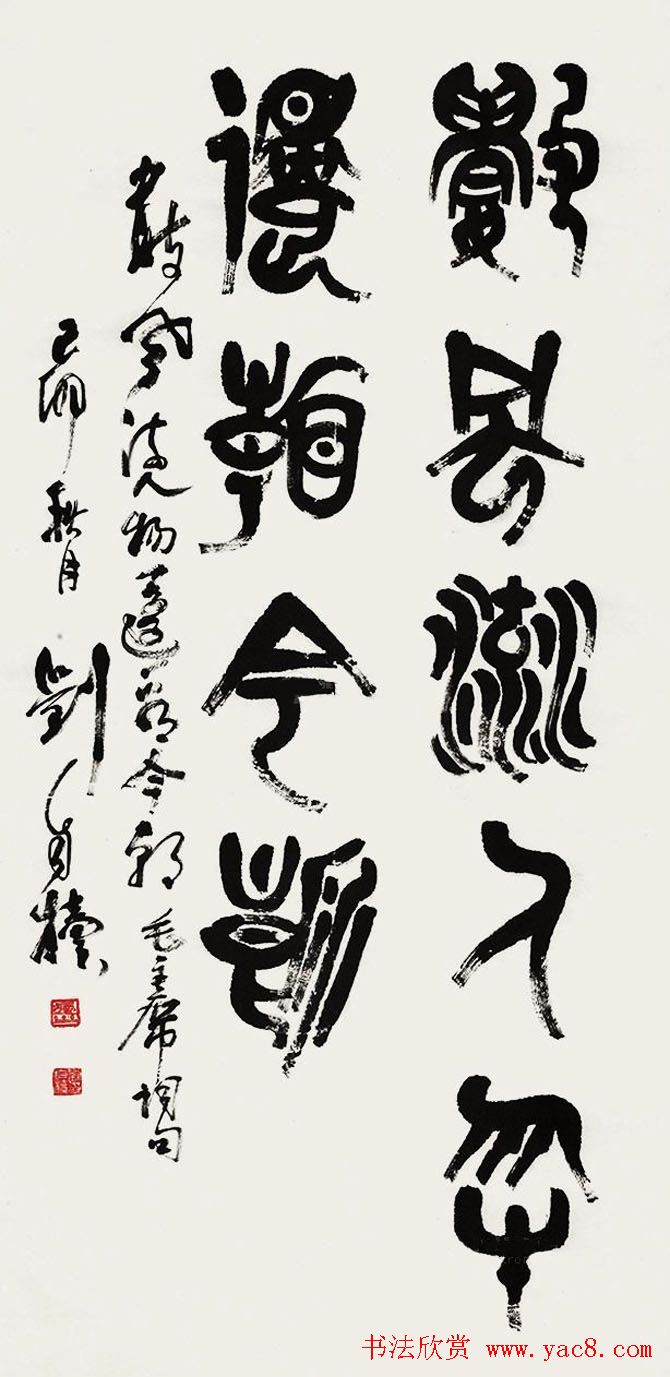 數風流人物
還看今朝
數風流人物還看今朝 毛主席詞句
己卯秋月 劉自櫝
书法欣赏 www.yac8.com